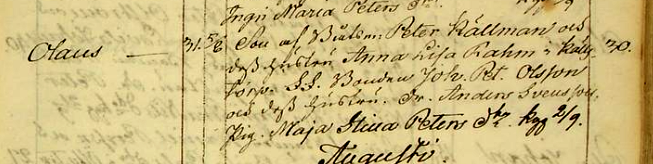 Ingri Maria Peters Dr.
Olaus — 31. 5/8 Son af Båtsm. Peter Källman och
deß hustru Anna Lisa Rahm i Källs 30.
torp. S.S. Bonden Joh. Pet. Olsson
och deß hustru. Dr. Anders Svensson,
Pig. Maja Stina Peters Dr. Kgg 2/9.
Augusti.